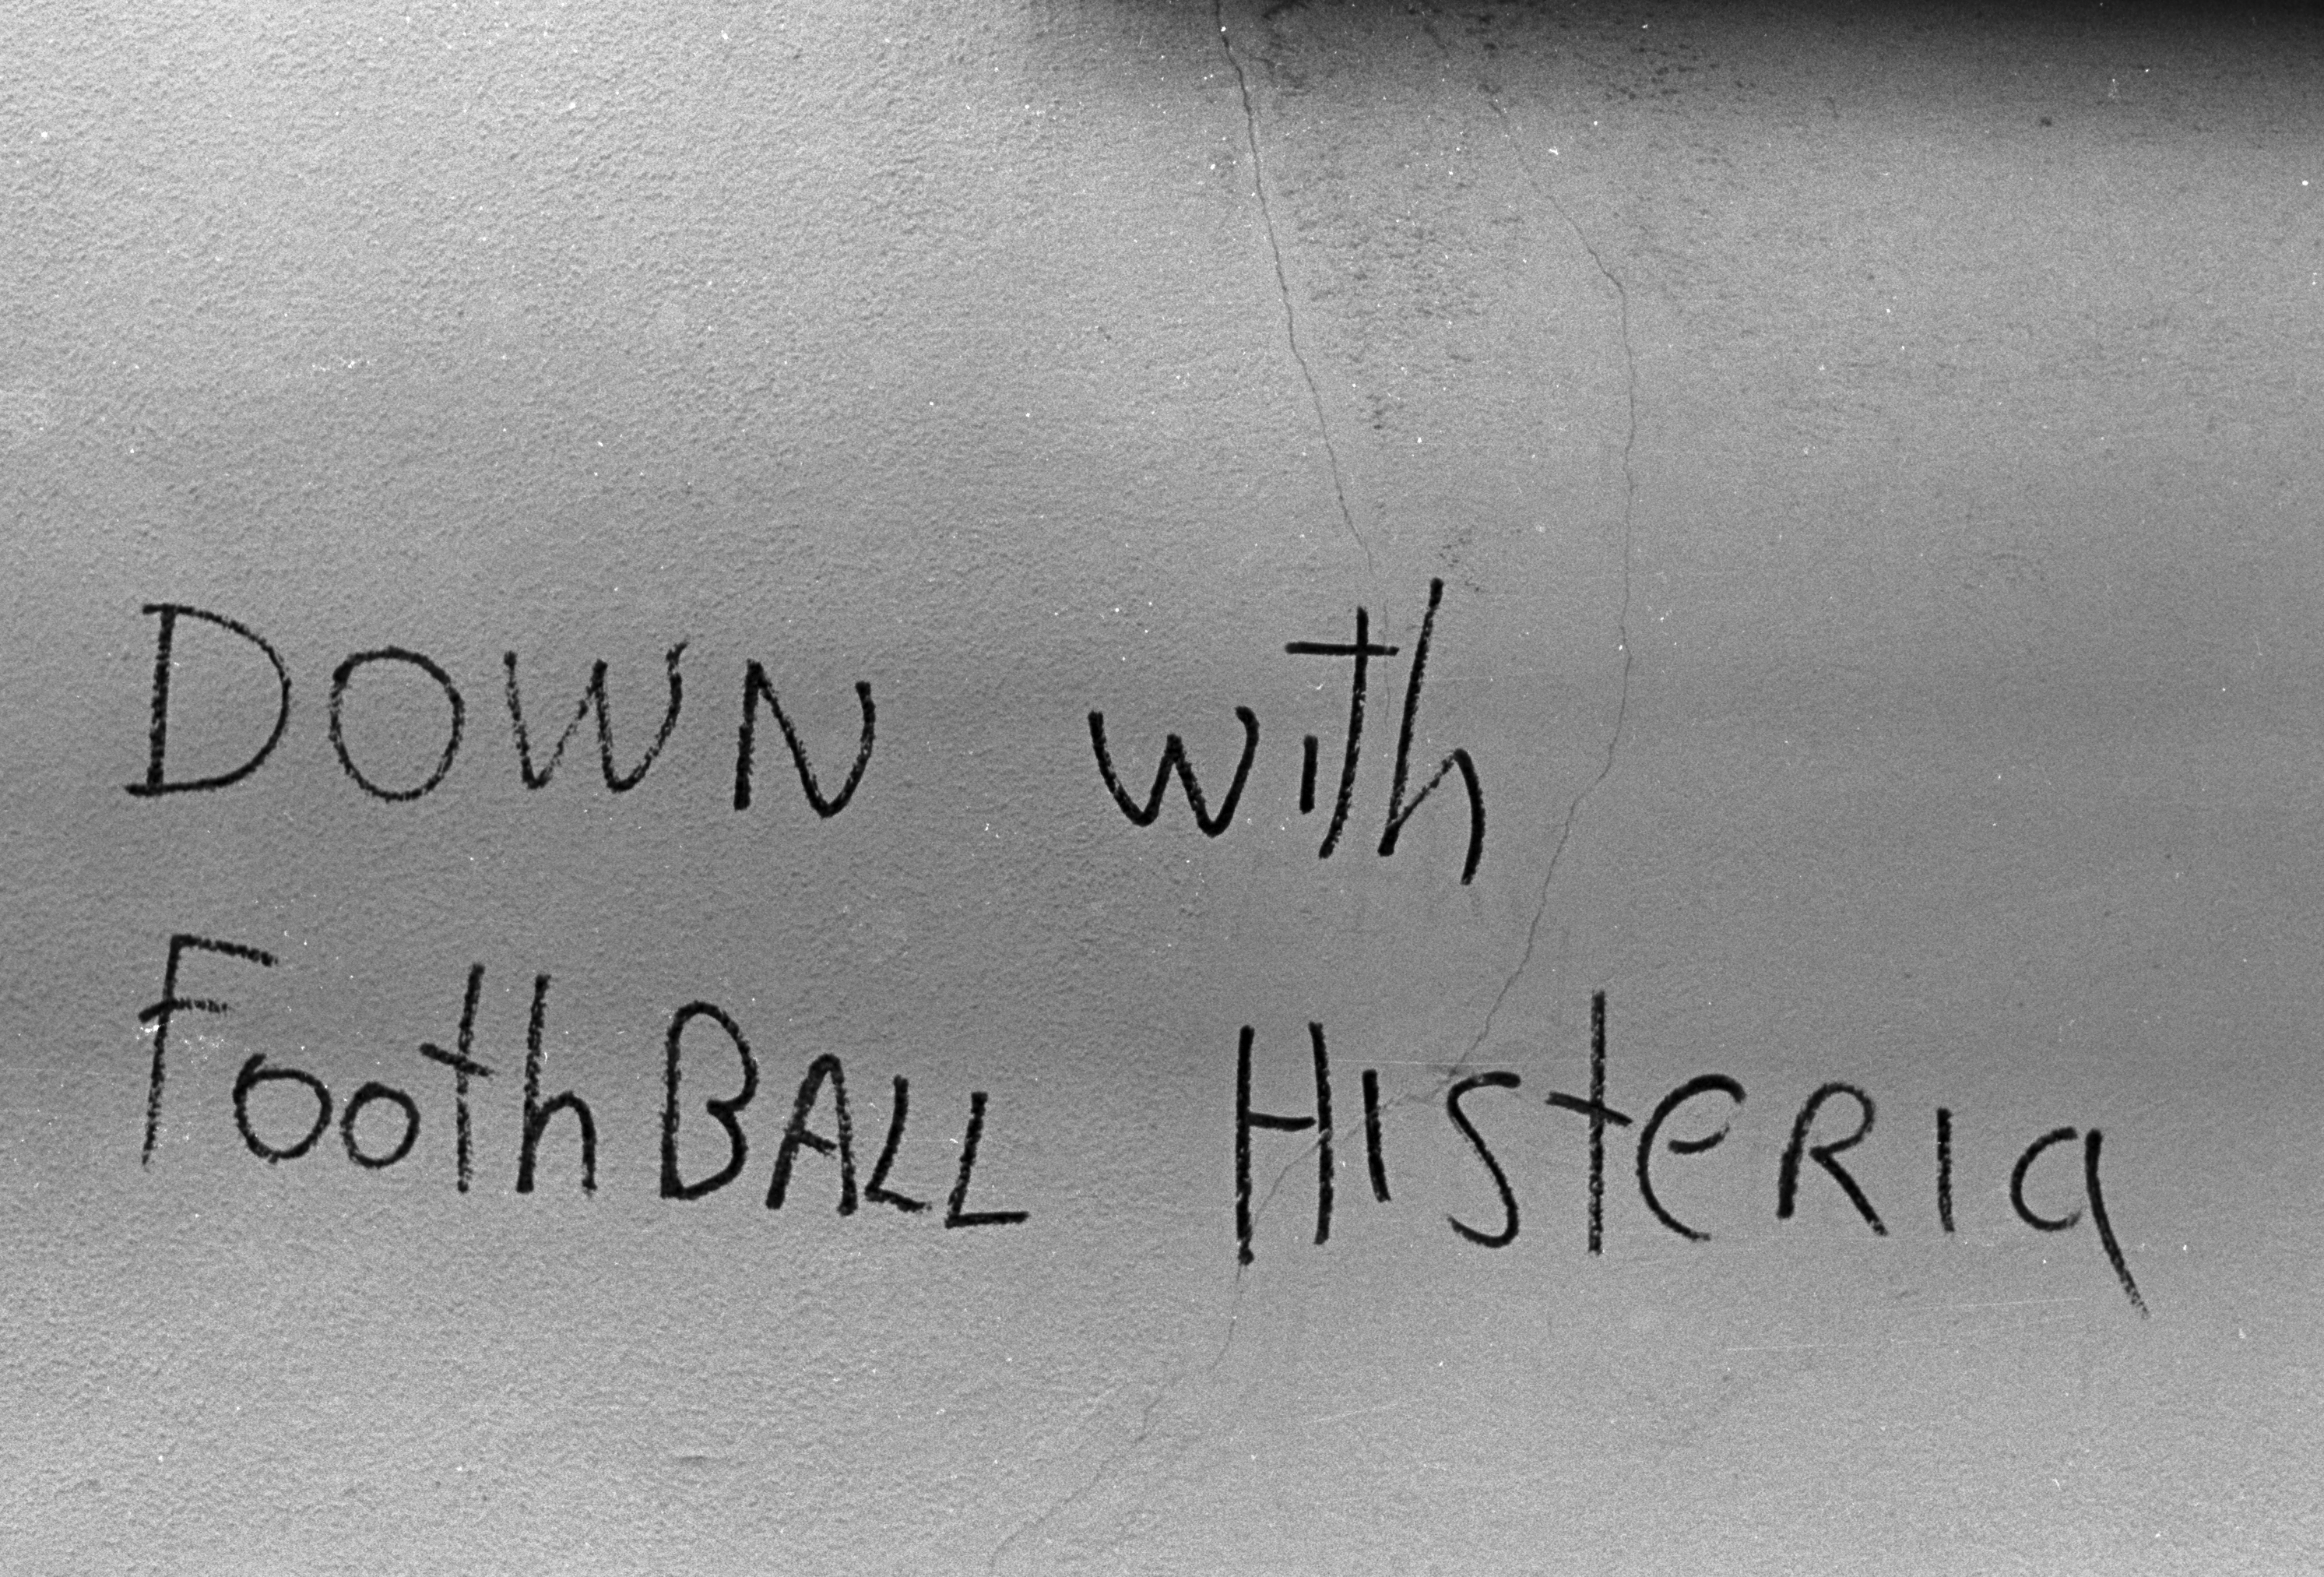 DOWN with
FoothBALL HISteRIa